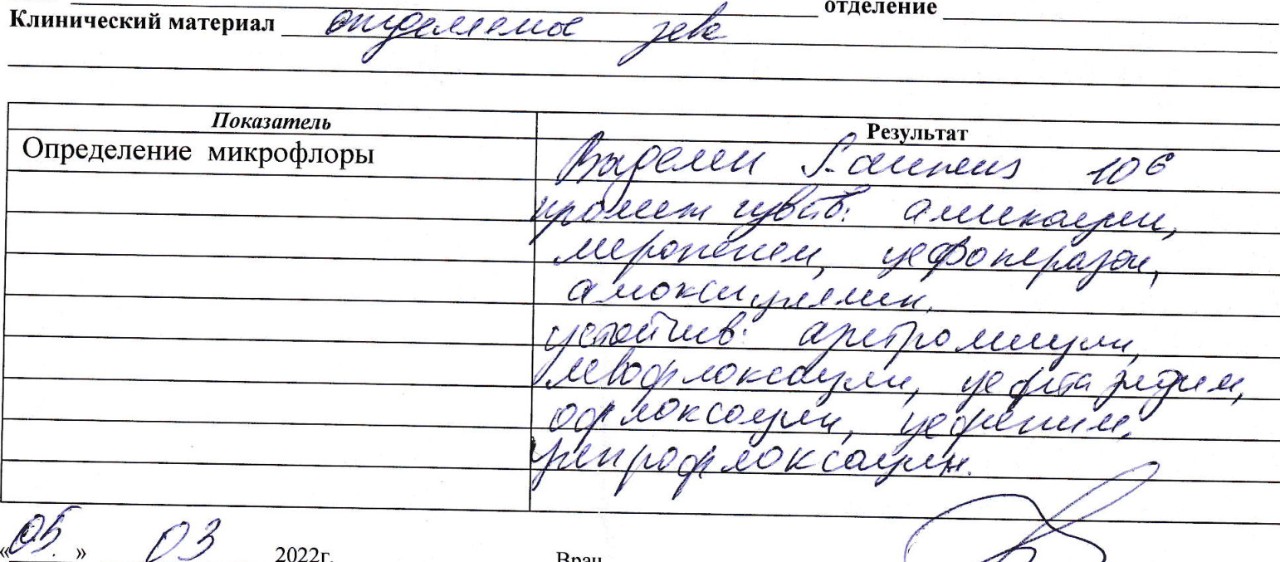 отделение
Клинический материал отделяемое зева
Показатель Результат
Определение микрофлоры Выделен S. aureus 10⁶
промеж чувств: амикацин,
меропенем, цефоперазон,
амоксициллин.
устойчив: азитромицин,
левофлоксацин, цефтазидим,
офлоксацин, цефепим,
ципрофлоксацин.
«05.» 03 2022г. Врач